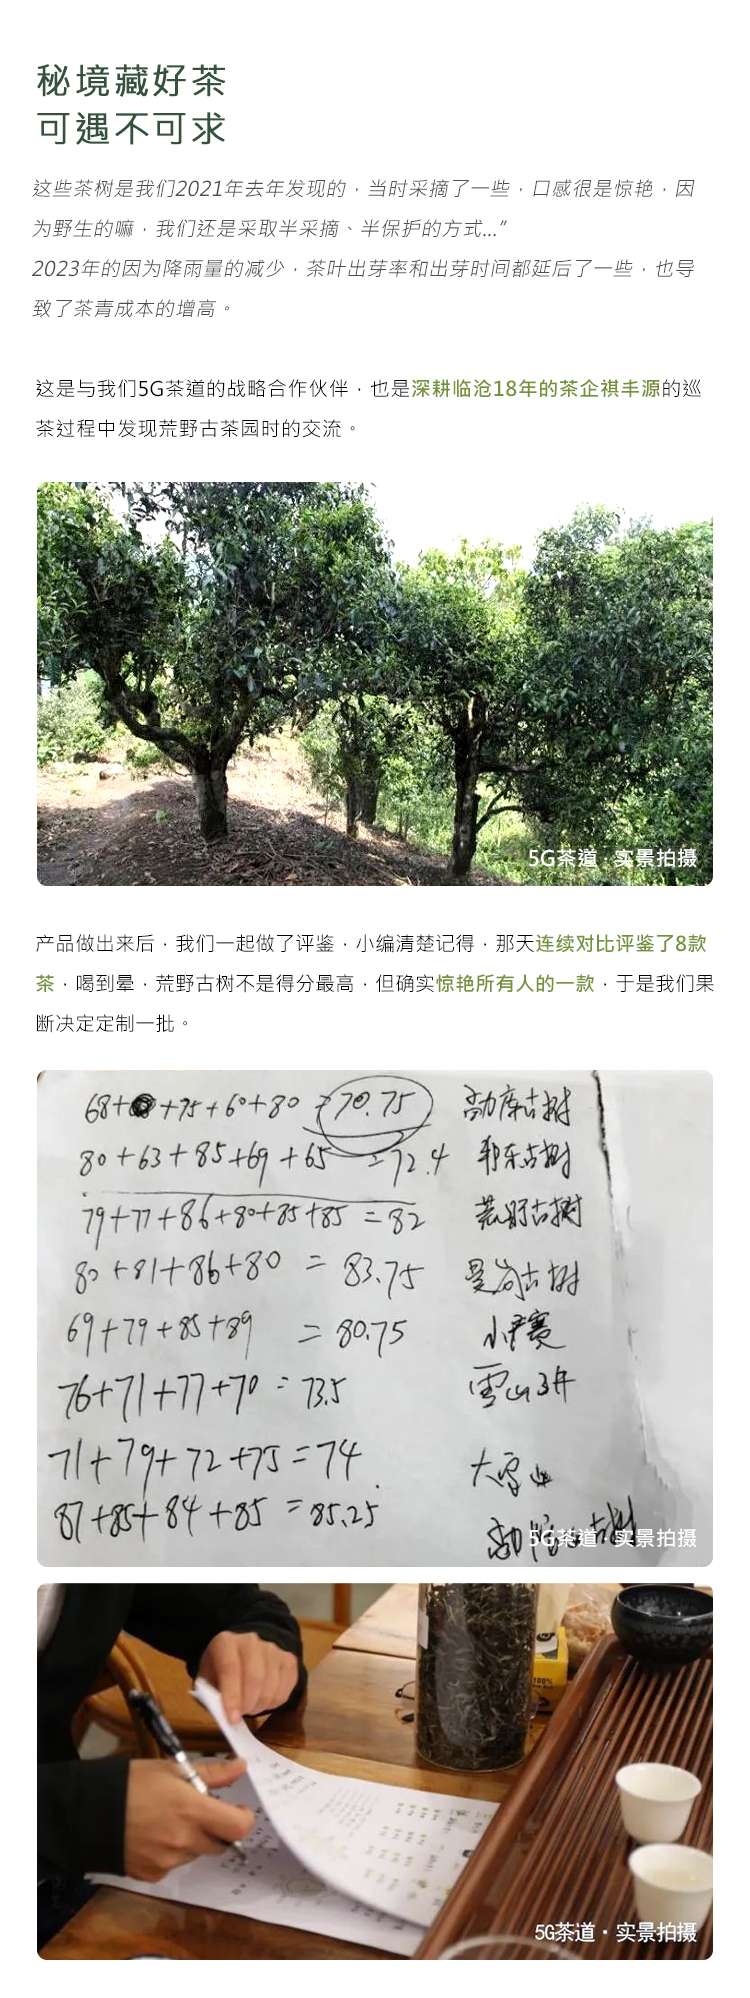 秘境藏好茶
可遇不可求
这些茶树是我们2021年去年发现的，当时采摘了一些，口感很是惊艳，因
为野生的嘛，我们还是采取半采摘、半保护的方式...”
2023年的因为降雨量的减少，茶叶出芽率和出芽时间都延后了一些，也导
致了茶青成本的增高。
这是与我们5G茶道的战略合作伙伴，也是深耕临沧18年的茶企祺丰源的巡
茶过程中发现荒野古茶园时的交流。
5G茶道·实景拍摄
产品做出来后，我们一起做了评鉴，小编清楚记得，那天连续对比评鉴了8款
茶，喝到晕，荒野古树不是得分最高，但确实惊艳所有人的一款，于是我们果
断决定定制一批。
68+ +75+60+80=70.75 勐库古树
80+63+85+69+65=72.4 邦东古树
79+77+86+80+85+85=82 荒野古树
80+81+86+80=83.75 昔岗古树
69+79+85+89=80.75 小户赛
76+71+77+70=73.5 雪山3年
71+79+72+75=74 大雪山
87+85+84+85=85.25 古树
5G茶道·实景拍摄
5G茶道·实景拍摄